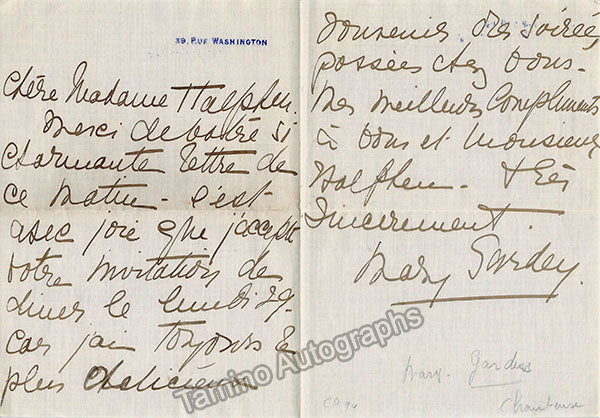 39, RUE WASHINGTON
Chère Madame Halphen.
Merci de votre si
charmante lettre de
ce matin - c'est
avec joie que j'accepte
votre invitation de
diner le lundi 29-
car j'ai toujours le
plus délicieux
souvenir des soirées
passées chez vous-
Mes meilleurs compliments
à vous et Monsieur
Halphen - très
sincerement.
Mary Garden.
Mary Garden
Chanteuse
Tamino Autographs